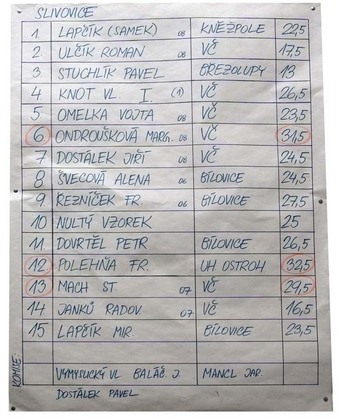 SLIVOVICE
1 LAPČÍK (SAMEK) 08 KNĚŽPOLE 22,5
2 ULČÍK ROMAN 08 VČ 17,5
3 STUCHLÍK PAVEL BŘEZOLUPY 13
4 KNOT VL I. (1) VČ 26,5
5 OMELKA VOJTA 08 VČ 23,5
6 ONDROUŠKOVÁ MARG. 08 VČ 31,5
7 DOSTÁLEK JIŘÍ 08 VČ 24,5
8 ŠVECOVÁ ALENA 06 BÍLOVICE 24,5
9 ŘEZNÍČEK FR. 06 BÍLOVICE 27,5
10 NULTÝ VZOREK 25
11 DOVRTĚL PETR BÍLOVICE 26,5
12 POLEHŇA FR. UH OSTROH 32,5
13 MACH ST 07 VČ 29,5
14 JANKŮ RADOV. 07 VČ 16,5
15 LAPČÍK MIR. BÍLOVICE 23,5
KOMISE: VYMYSLICKÝ VL BALÁČ J. MANCL JAR.
DOSTÁLEK PAVEL